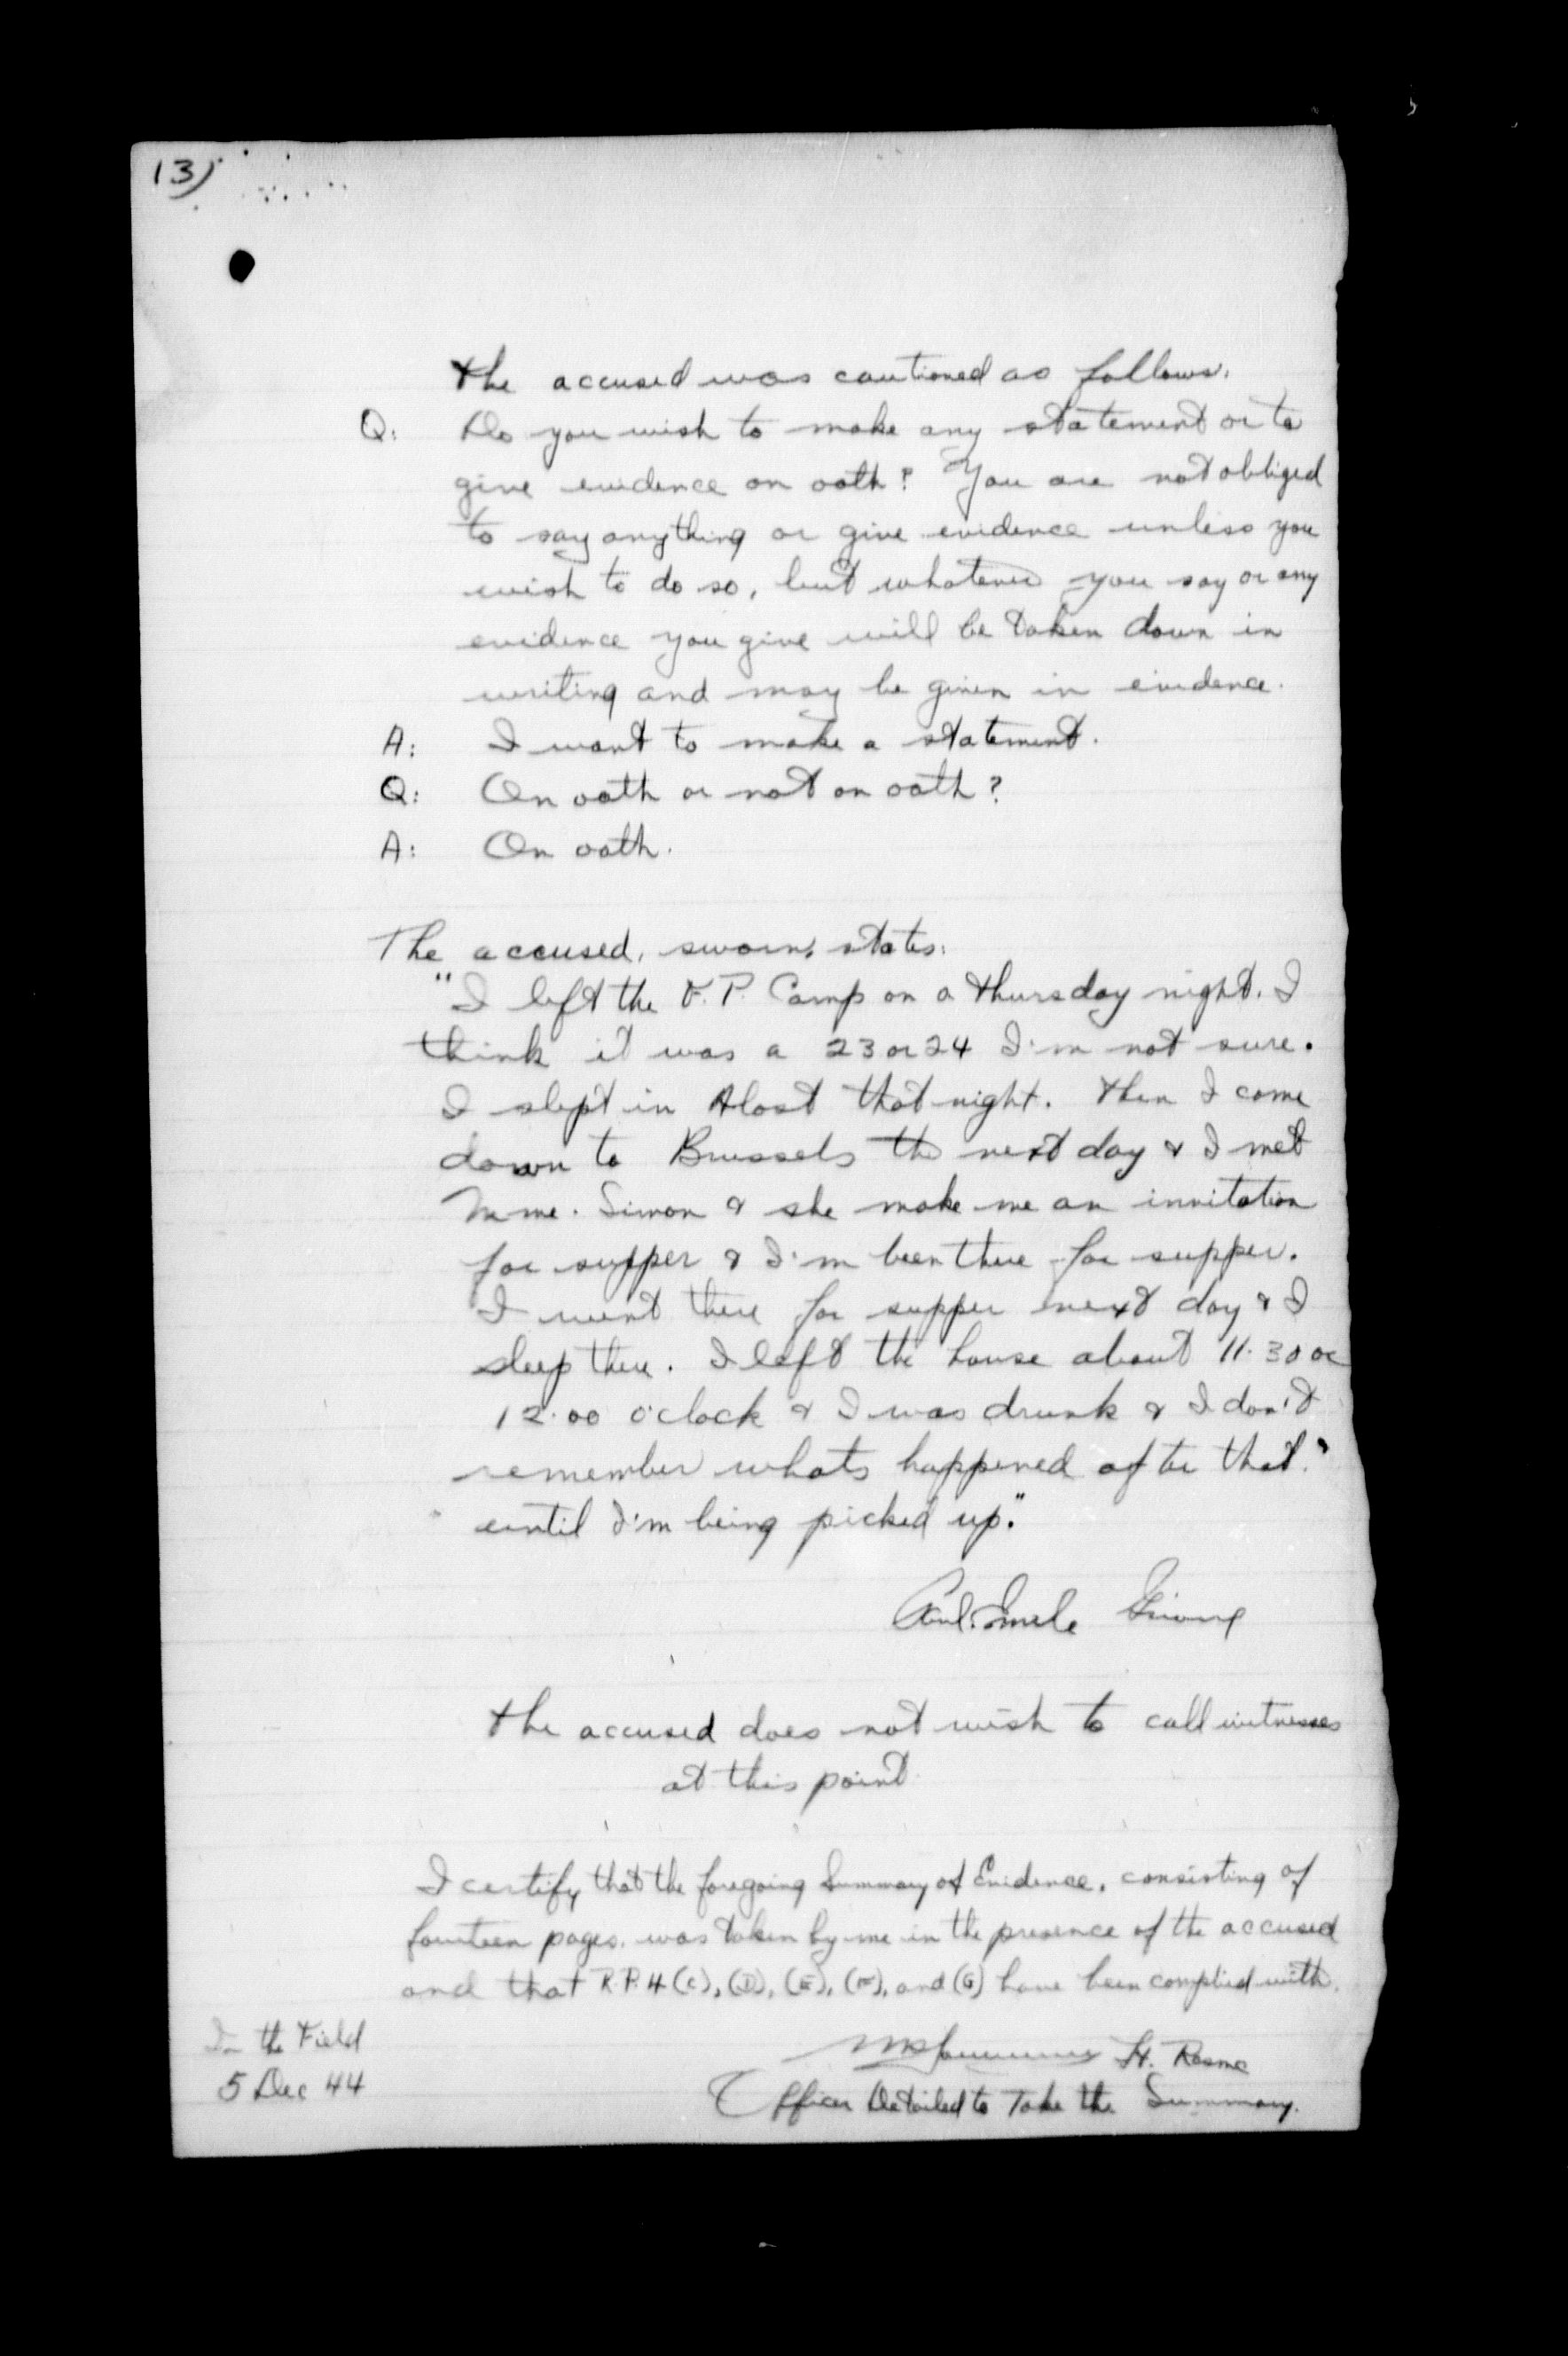 13)
The accused was cautioned as follows:
Q: Do you wish to make any statement or to
give evidence on oath? You are not obliged
to say anything or give evidence unless you
wish to do so, but whatever you say or any
evidence you give will be taken down in
writing and may be given in evidence.
A: I want to make a statement.
Q: On oath or not on oath?
A: On oath.
The accused, sworn, states:
"I left the F.P. Camp on a Thursday night. I
think it was a 23 or 24 I'm not sure.
I slept in Alost that night. Then I come
down to Brussels the next day & I met
Mme. Simon & she make me an invitation
for supper & I'm been there for supper.
I went there for supper next day & I
sleep there. I left the house about 11.30 or
12.00 o'clock & I was drunk & I don't
remember whats happened after that."
until I'm being picked up."
Paul-Emile
The accused does not wish to call witnesses
at this point
I certify that the foregoing Summary of Evidence, consisting of
fourteen pages, was taken by me in the presence of the accused
and that R.P. 4 (C), (D), (E), (F), and (G) have been complied with.
In the Field
5 Dec 44
Officer Detailed to Take the Summary.